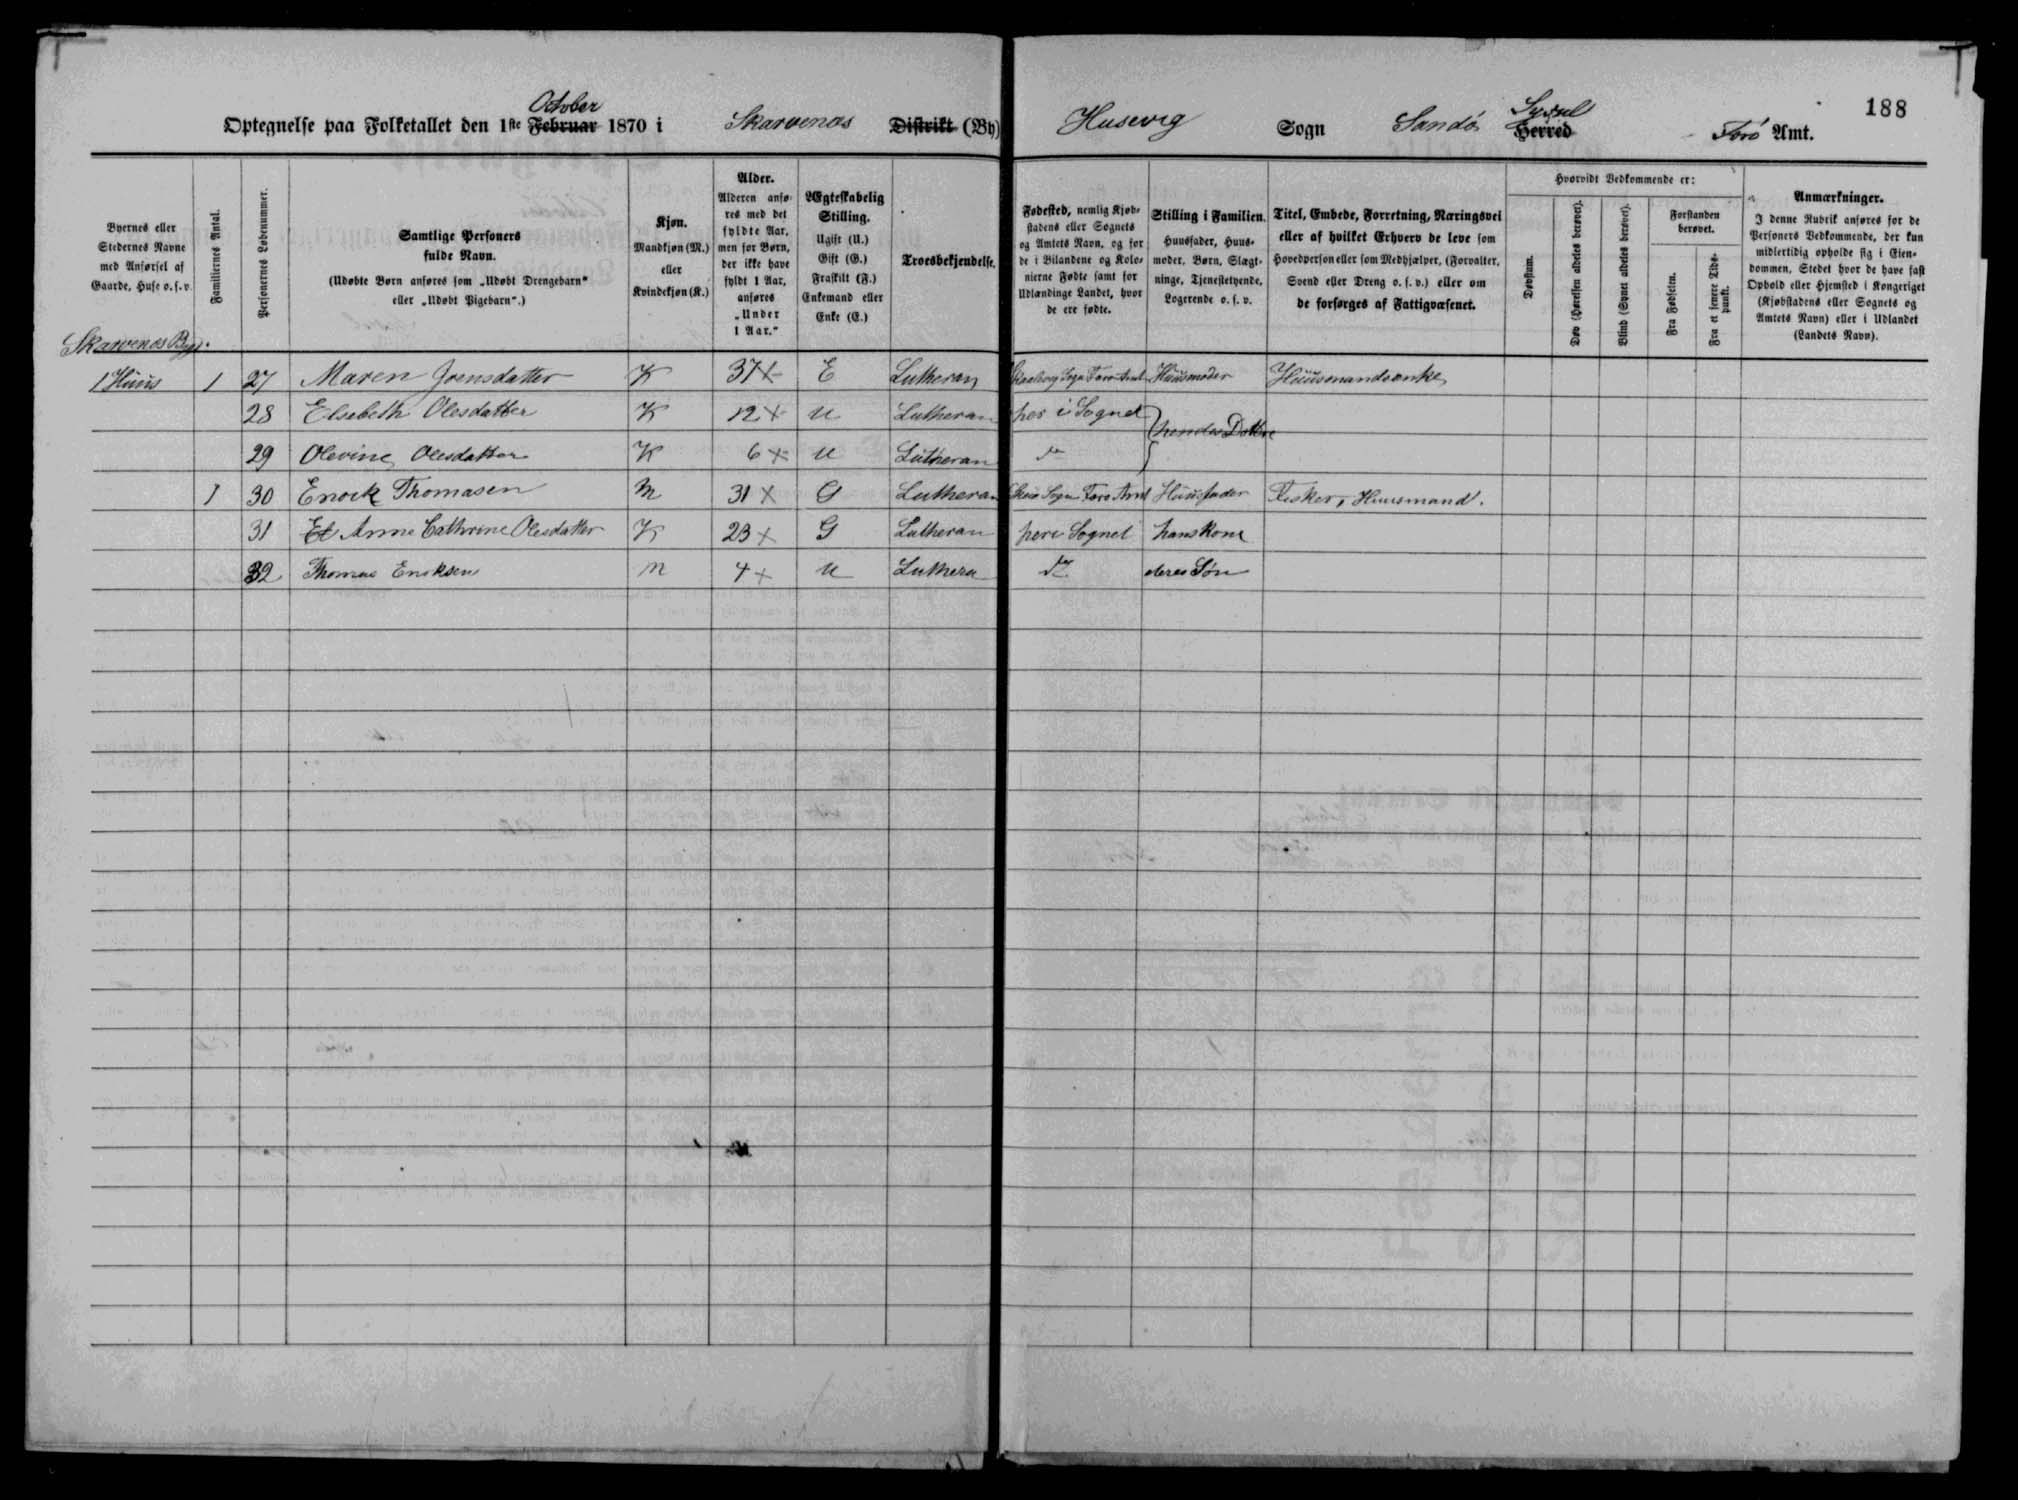 188
October
Optegnelse paa Folketallet den 1ste Februar 1870 i Skarvenæs Distrikt (By)
Husevig Sogn Sandø Syssel Herred Færø Amt.
Byernes eller Stedernes Navne med Anførsel af Gaarde, Huse o. s. v.
Familiernes Antal.
Personernes Løbenummer.
Samtlige Personers fulde Navn.
(Udøbte Børn anføres som „Udøbt Drengebarn“ eller „Udøbt Pigebarn“.)
Kjøn.
Mandkjøn (M.) eller Kvindekjøn (K.)
Alder.
Alderen anføres med det fyldte Aar, men for Børn, der ikke have fyldt 1 Aar, anføres „Under 1 Aar.“
Ægteskabelig Stilling.
Ugift (U.) Gift (G.) Fraskilt (F.) Enkemand eller Enke (E.)
Troesbekjendelse.
Fødested, nemlig Kjøbstadens eller Sognets og Amtets Navn, og for de i Bilandene og Kolonierne Fødte samt for Udlændinge Landet, hvor de ere fødte.
Stilling i Familien.
Huusfader, Huusmoder, Børn, Slægtninge, Tjenestetyende, Logerende o. s. v.
Titel, Embede, Forretning, Næringsvei eller af hvilket Erhverv de leve som Hovedperson eller som Medhjælper, (Forvalter, Svend eller Dreng o. s. v.) eller om de forsørges af Fattigvæsenet.
Hvorvidt Vedkommende er:
Døvstum.
Døv (Hørelsen aldeles berøvet).
Blind (Synet aldeles berøvet).
Forstanden berøvet.
Fra Fødselen.
Fra et senere Tidspunkt.
Anmærkninger.
I denne Rubrik anføres for de Personers Vedkommende, der kun midlertidig opholde sig i Eiendommen, Stedet hvor de have fast Ophold eller Hjemsted i Kongeriget (Kjøbstadens eller Sognets og Amtets Navn) eller i Udlandet (Landets Navn).
Skarvenæs Bygd.
1 Huus 1 27 Maren Joensdatter K 37 E Lutheran Sogn Færø Amt Huusmoder Huusmandsenke
28 Elsebeth Olesdatter K 12 U Lutheran her i Sognet hendes Døttre
29 Olevine Olesdatter K 6 U Lutheran do
1 30 Enock Thomasen M 31 G Lutheran Sogn Færø Amt Huusfader Fisker, Huusmand.
31 Anne Cathrine Olesdatter K 23 G Lutheran her i Sognet hans Kone
32 Thomas Enoksen M 4 U Luthera do deres Søn